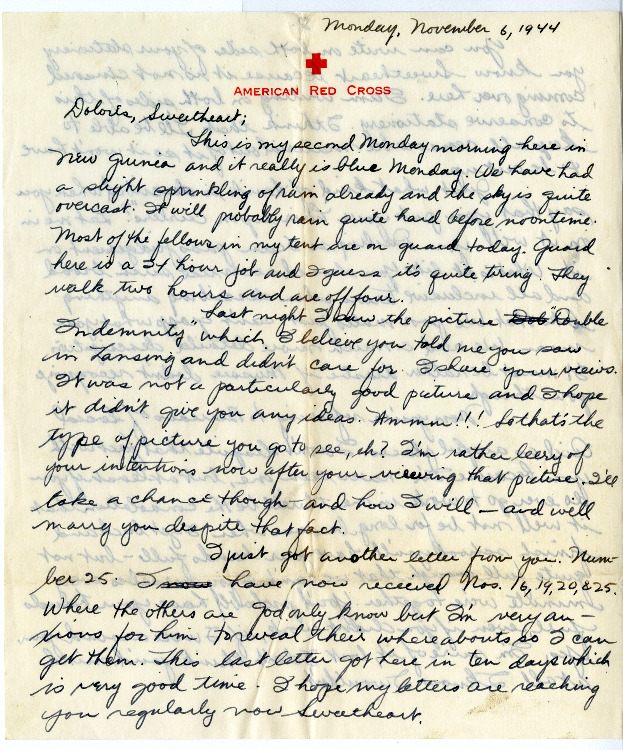 Monday, November 6, 1944
AMERICAN RED CROSS
Dolores, Sweetheart;
This is my second Monday morning here in
New Guinea and it really is blue Monday. We have had
a slight sprinkling of rain already and the sky is quite
overcast. It will probably rain quite hard before noontime.
Most of the fellows in my tent are on guard today. Guard
here is a 24 hour job and I guess it's quite tiring. They
walk two hours and are off four.
Last night I saw the picture Dob "Double
Indemnity" which I believe you told me you saw
in Lansing and didn't care for. I share your views.
It was not a particularly good picture and I hope
it didn't give you any ideas. Ammm!!! So that's the
type of picture you go to see, eh? I'm rather leery of
your intentions now after your viewing that picture. I'll
take a chance though - and how I will - and will
marry you despite that fact.
I just got another letter from you. Num-
ber 25. I now have now received Nos. 16, 19, 20, & 25.
Where the others are God only know but I'm very an-
xious for him to reveal their whereabouts so I can
get them. This last letter got here in ten days which
is very good time. I hope my letters are reaching
you regularly now Sweetheart.